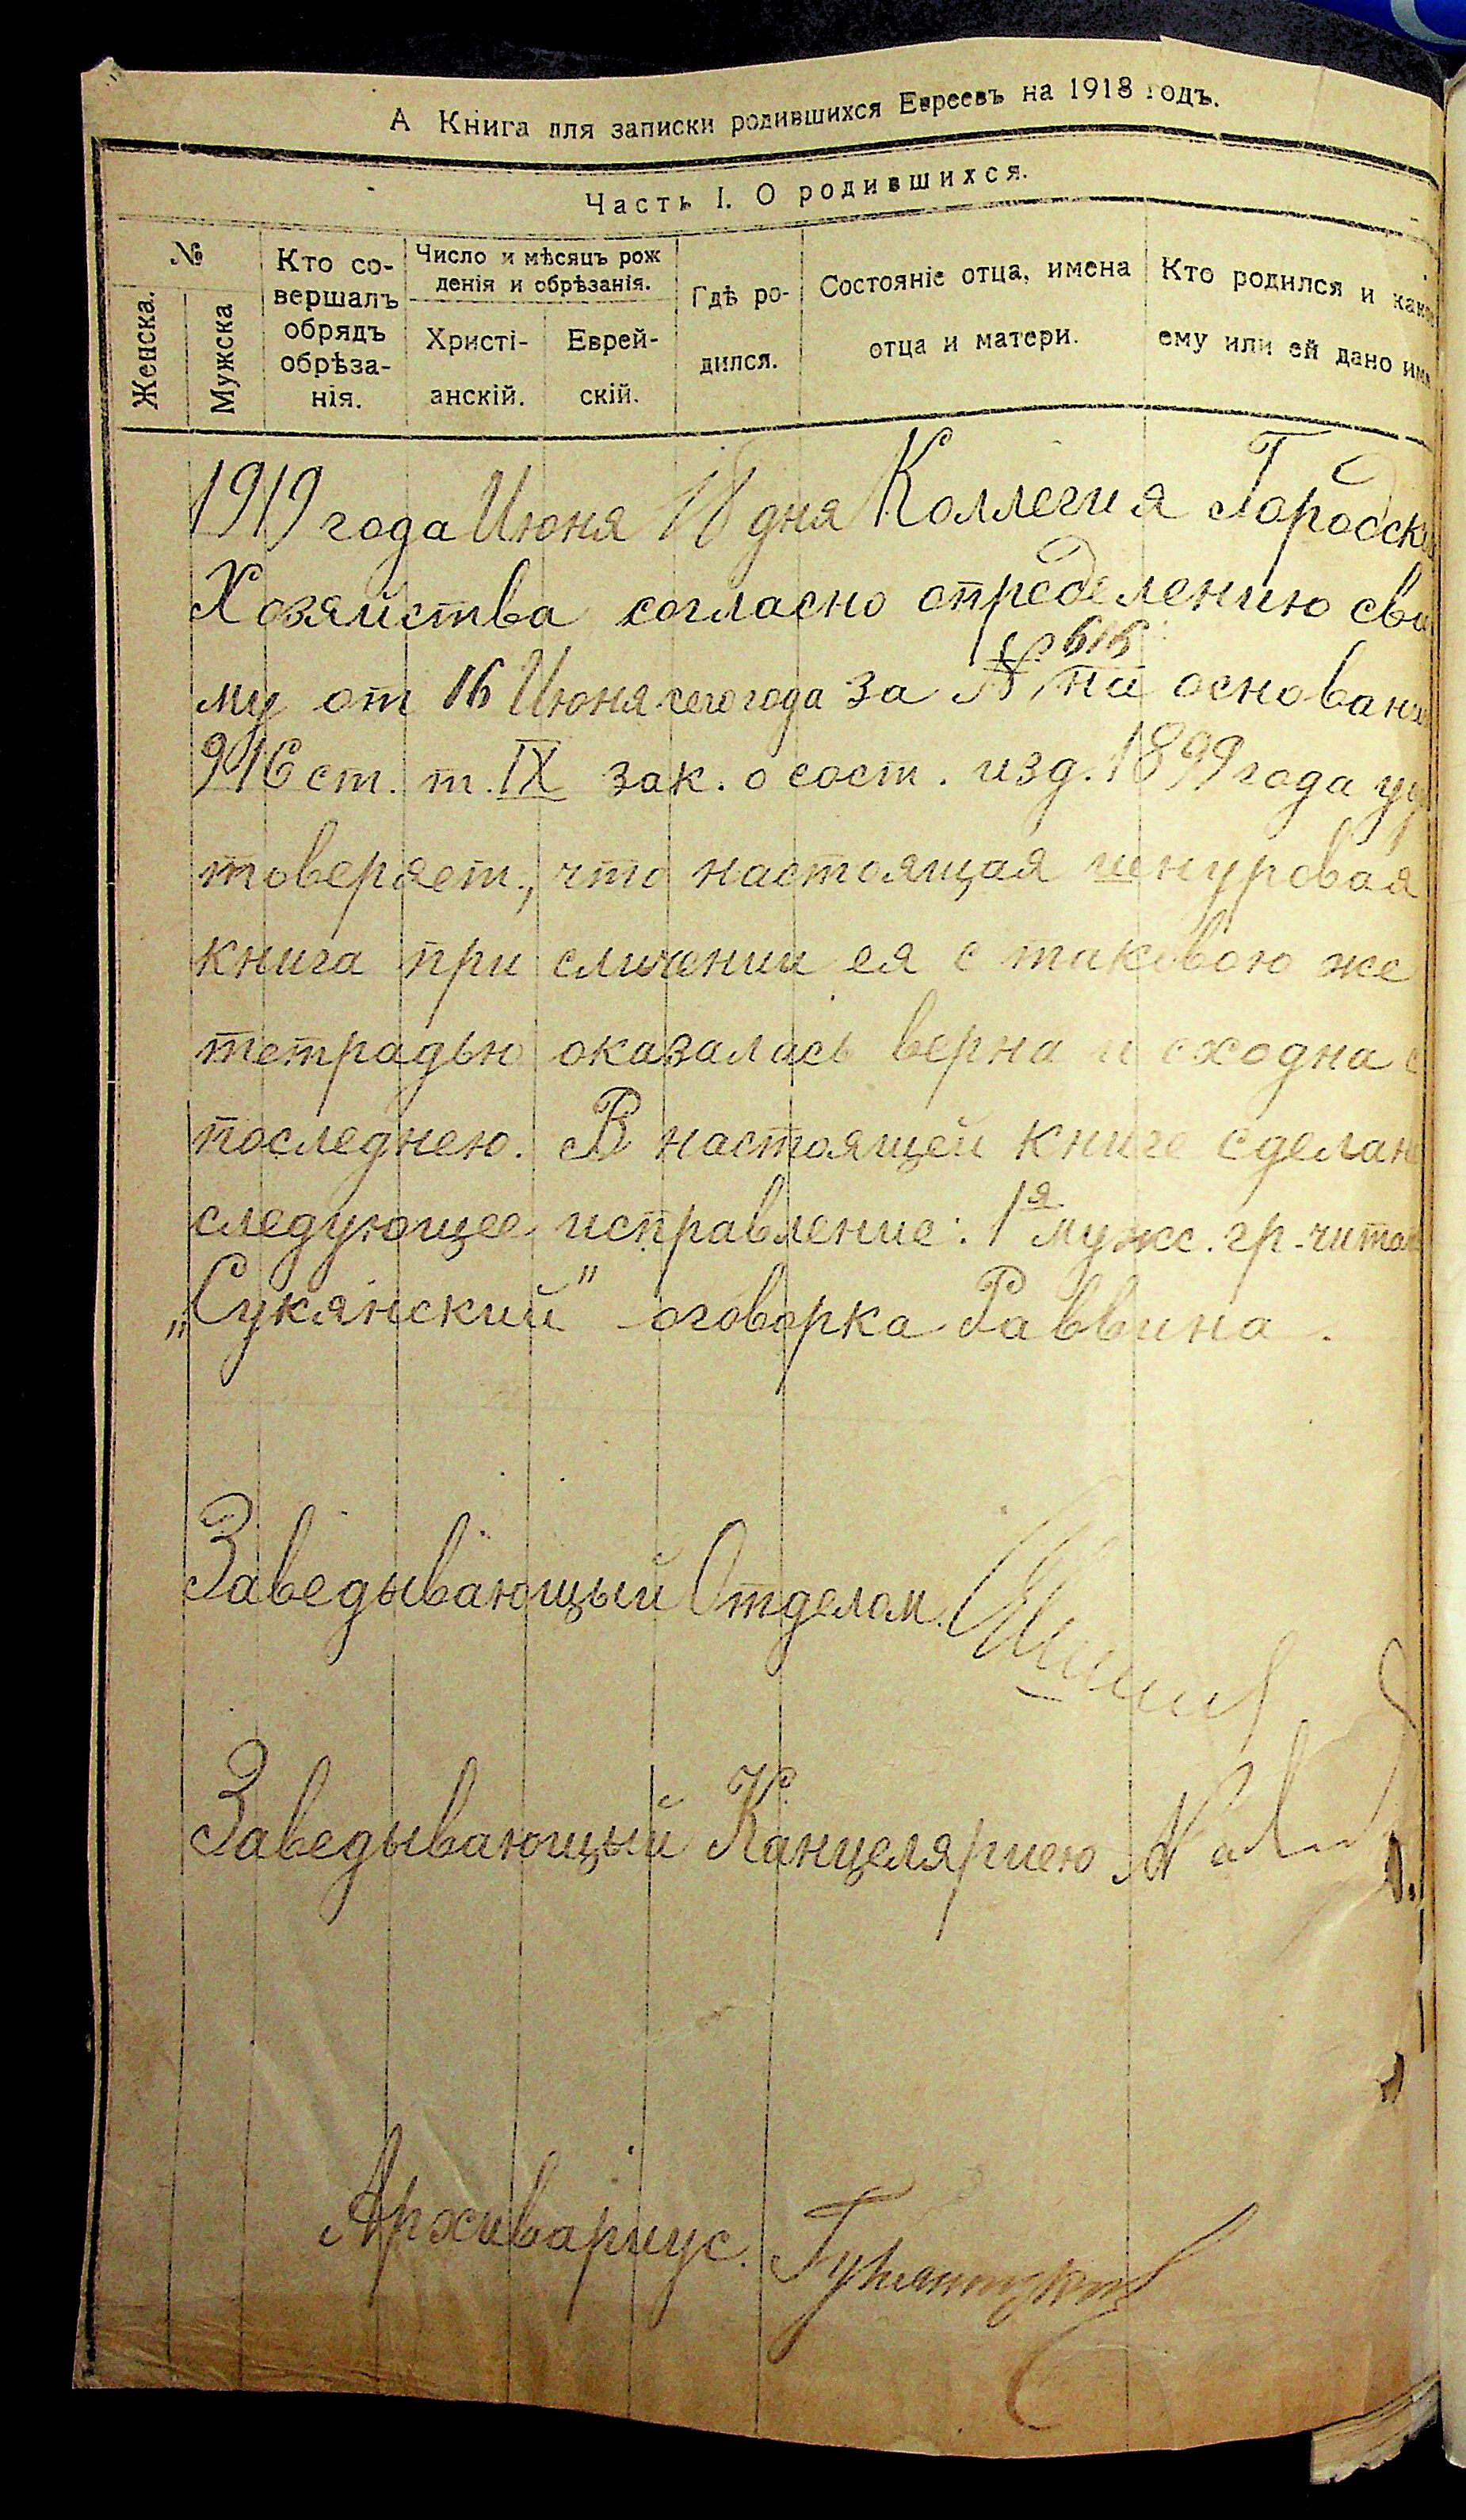 А Книга для записки родившихся Евреевъ на 1918 годъ.
Часть I. О родившихся.
№
Женска.
Мужска
Кто со-
вершалъ
обрядъ
обрѣза-
нія.
Число и мѣсяцъ рож
денія и обрѣзанія.
Христі-
анскій.
Еврей-
скій.
Гдѣ ро-
дился.
Состояніе отца, имена
отца и матери.
Кто родился и какое
ему или ей дано имя
1919 года Июня 18 дня Коллегия Городск
Хозяйства согласно определению сво
му от 16 Июня сего года за № 616 на основани
916 ст. т. IX зак. о сост. изд. 1899 года удо
товеряет, что настоящая шнуровая
книга при сличении ея с таковою же
тетрадью оказалась верна и сходна с
последнею. В настоящей книге сделан
следующее исправление: 1я мужс. гр. читат
„Сукянский" оговорка Раввина.
Заведывающый Отделом
Заведывающый Канцеляриею
Архивариус.